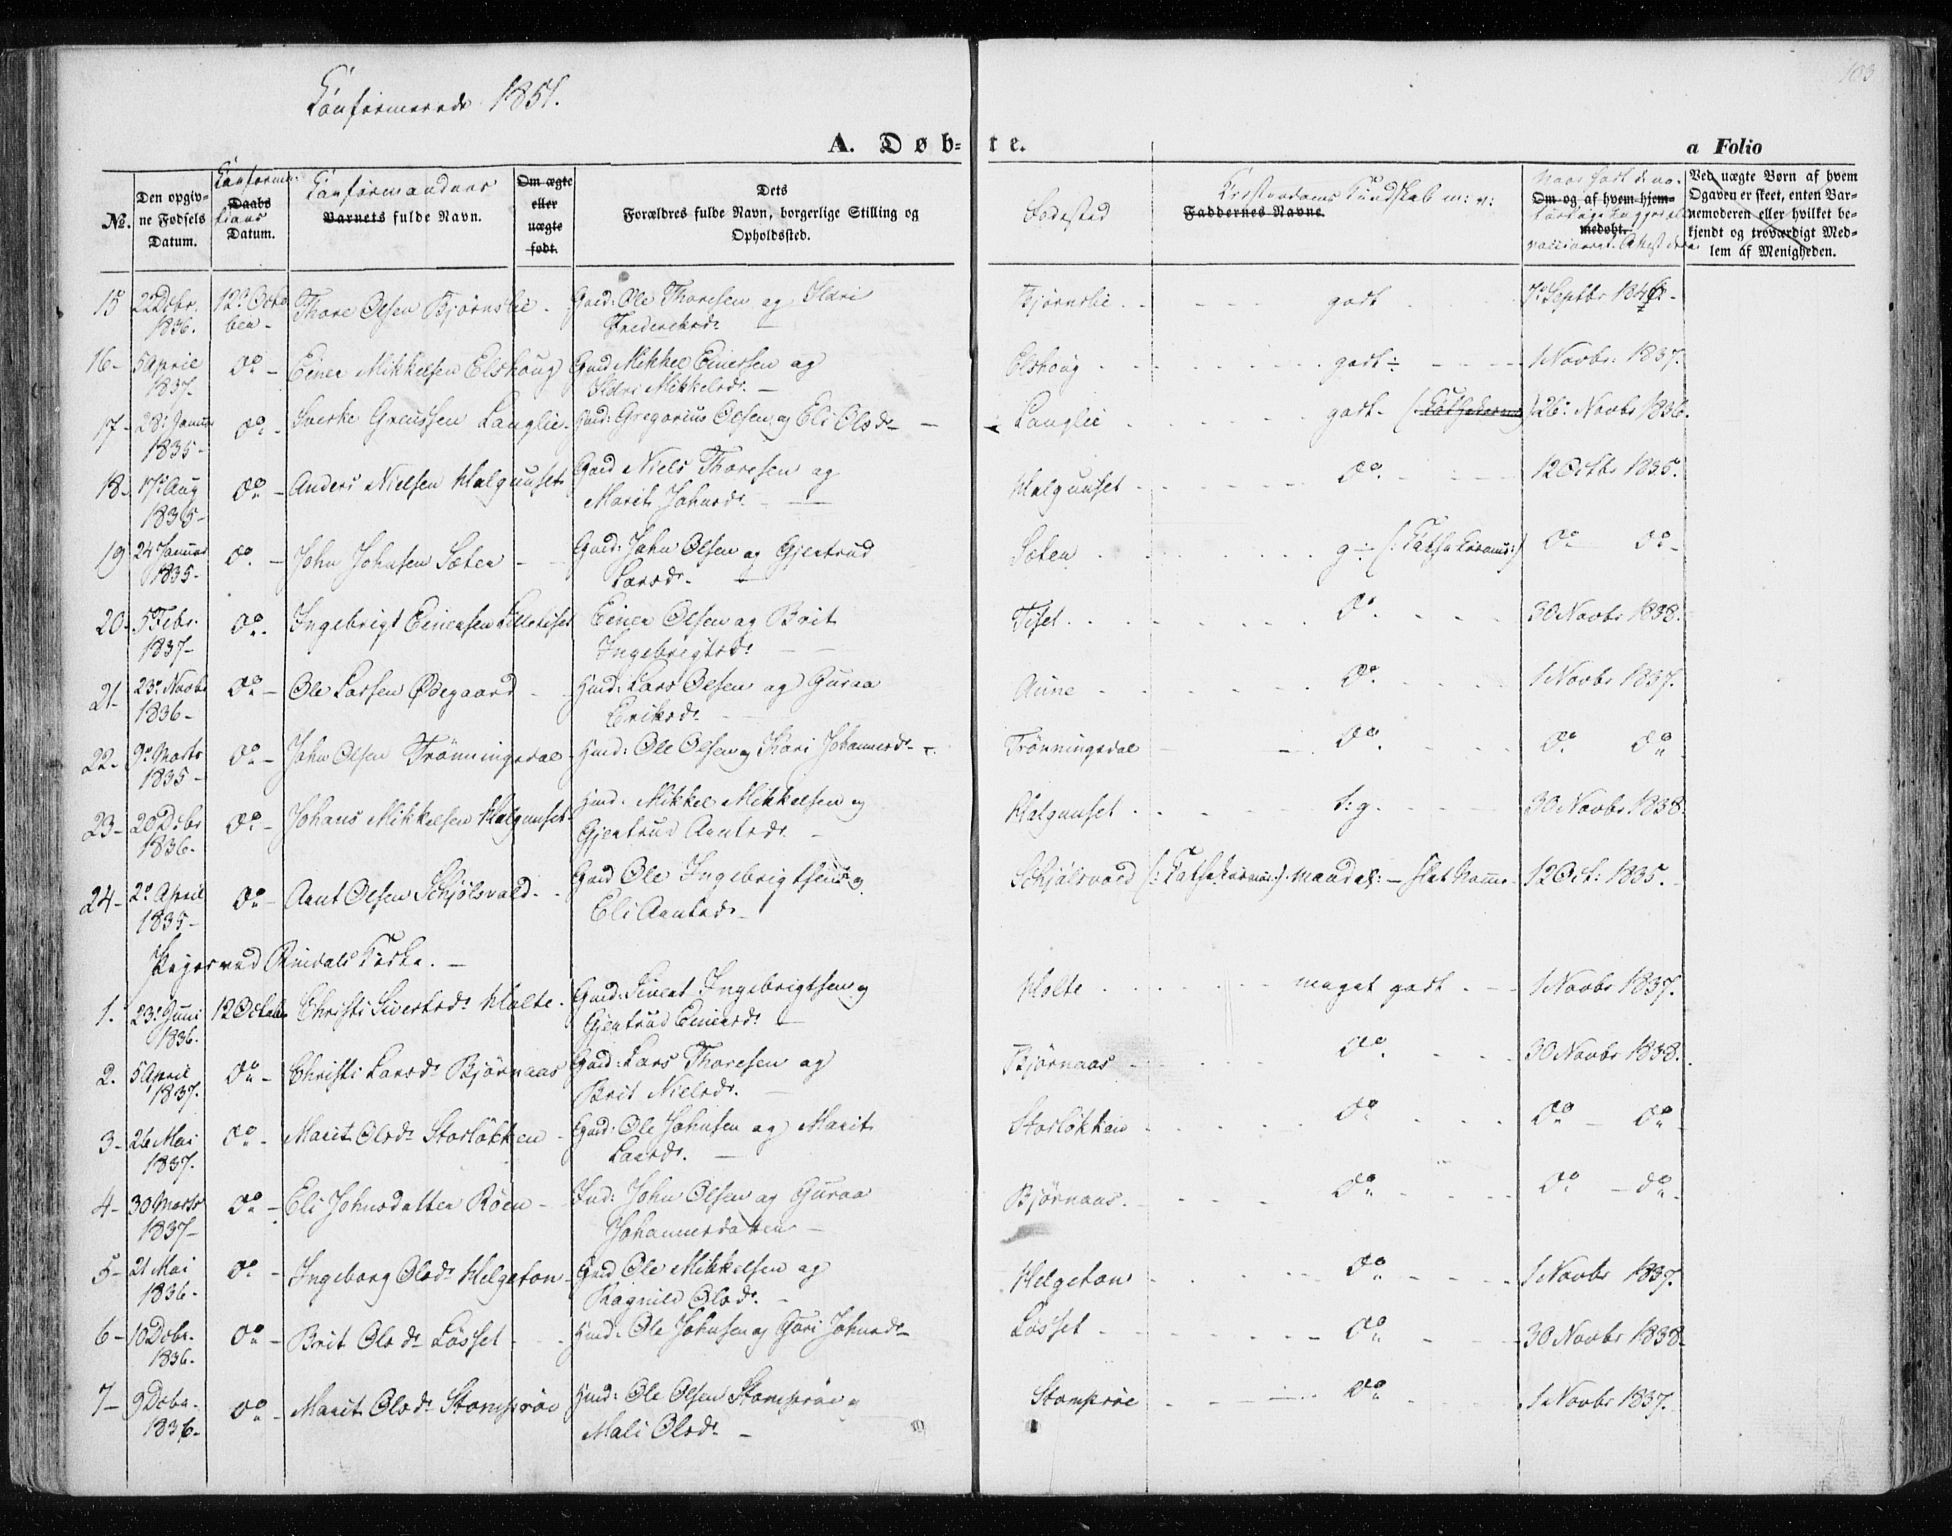 103
Confirmerede 1851.
A. Døb-te.
a Folio
No.
Den opgiv-
ne Fødsels
Datum.
Confirma-
Daabs
tions
Datum.
Confirmandens
Barnets fulde Navn.
Om ægte
eller
uægte
født.
Dets
Forældres fulde Navn, borgerlige Stilling og
Opholdssted.
Bodested
Christendoms Kundskab m: v:
Faddernes Navne.
Om og af hvem hjem-
medøbt.
Ved uægte Børn af hvem
Ogaven er skeet, enten Bar-
nemoderen eller hvilket be-
kjendt og troværdigt Med-
lem af Menigheden.
15 22 Decbr. 1836. 12 Octo ber - Thore Olsen Bjørnslie - Gaard: Ole Thoresen og Sldri Frederiksdr Bjørnslie godt 7 Septbr 184
16 - 5 April 1837. do - Einer Mikkelsen Elshoug Gaard Mikkel Einersen og Sldri Mikkelsdr. - Elshoug godt 1 Novbr. 1837.
17 - 28 Januar 1835 - do - Sverke Greussen Langlie - Gaard: Gregorius Olsen og Eli Olsdr - Langlie godt - 26 Novbr 1836.
18 - 17 Aug 1835 - do - Anders Nielsen Halgunset Gaard Niels Thoresen og Marit Johnsdr. Halgunset do 12 Octbr 1835.
19 24 Januar 1835 - do - John Johnsen Sæter - Gaard: John Olsen og Gjertrud Larsdr. Sæter g ÷ do do -
20 - 5 Febr. 1837 - do - Ingebrigt Einersen Lilletiset Einer Olsen og Brit Ingebrigtsdr Tiset do 30 Novbr 1838.
21 - 23 Novbr 1836 - do - Ole Larsen Ødegaard - Huusmd: Lars Olsen og Guraa Eriksdr. Aune do 1 Novbr 1837.
22 - 9 Marts 1835 - do - John Olsen Trønningsdal - Hmd: Ole Olsen og Kari Johannesdr Trønningsdal do do do
23 - 20 Dcbr 1836. do - Johans Mikkelsen Halgunset Hmd: Mikkel Mikkelsen og Gjertrud Arntsdr. Halgunset t: g. 30 Novbr 1838.
24 - 2 April 1835 - do - Arnt Olsen Skjølsvold - Gaard Ole Ingebrigtsen og Eli Arntsdr Skjølsvold 12 Oct: 1835.
Piger ved Rindals Kirke. -
1. 23 Juni 1836. 12 October Christi Sivertsdr Holte - Gaard: Sivert Ingebrigtsen og Gjertrud Einersdr. Holte meget godt - 1 Novbr 1837.
2. 5 April 1837. do - Christi Larsdr Bjørnaas Gaard: Lars Thoresen og Brit Nielsdr. Bjørnaas do 30 Novbr 1838.
3 - 26 Mai 1837. do - Marit Olsdr Storløkken - Gaard: Ole Johnsen og Marit Larsdr. Storløkken do do - do
4 - 30 Marts 1837 - do - Eli Johnsdatter Röen - Ind: John Olsen og Guraa Johannesdatter Bjørnaas do do - do
5 - 21 Mai 1836 - do - Ingeborg Olsdr Helgeton - Gaard Ole Mikkelsen og Ragnild Olsdr. Helgeton do 1 Novbr 1837.
6 - 10 Dcbr. 1836. do - Brit Olsdr Løsset Hmd: Ole Johnsen og Guri Johnsdr - Løsset do 30 Novbr 1838
7 - 9 Dcbr. 1836 - do - Marit Olsdr Stomprøe Hmd: Ole Olsen Stomprøe og Mali Olsdr - Stomprøe do 1 Novbr 1837.